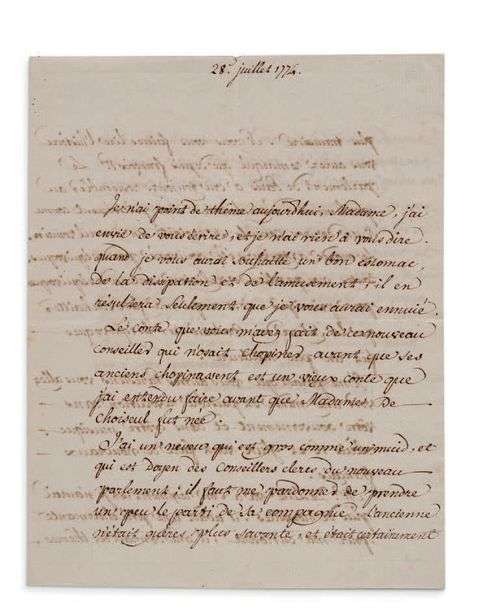 28. juillet 1774.
Je n'ai point de thème aujourdhui, Madame, j'ai
envie de vous écrire, et je n'ai rien à vous dire.
quand je vous aurai souhaitté un bon estomac,
de la dissipation et de l'amusement; il en
résultera seulement que je vous aurai ennuié.
Le conte que vous m'avez fait de ce nouveau
conseiller qui n'osait chopiner avant que ses
anciens chopinassent est un vieux conte que
j'ai entendu faire avant que Madame De
Choiseul fut née.
J'ai un neveu qui est gros comme un muid, et
qui est doyen des Conseillers clercs du nouveau
parlement; il faut me pardonner de prendre
un peu le parti de sa compagnie. L'ancienne
n'était guères plus savante, et était certainement